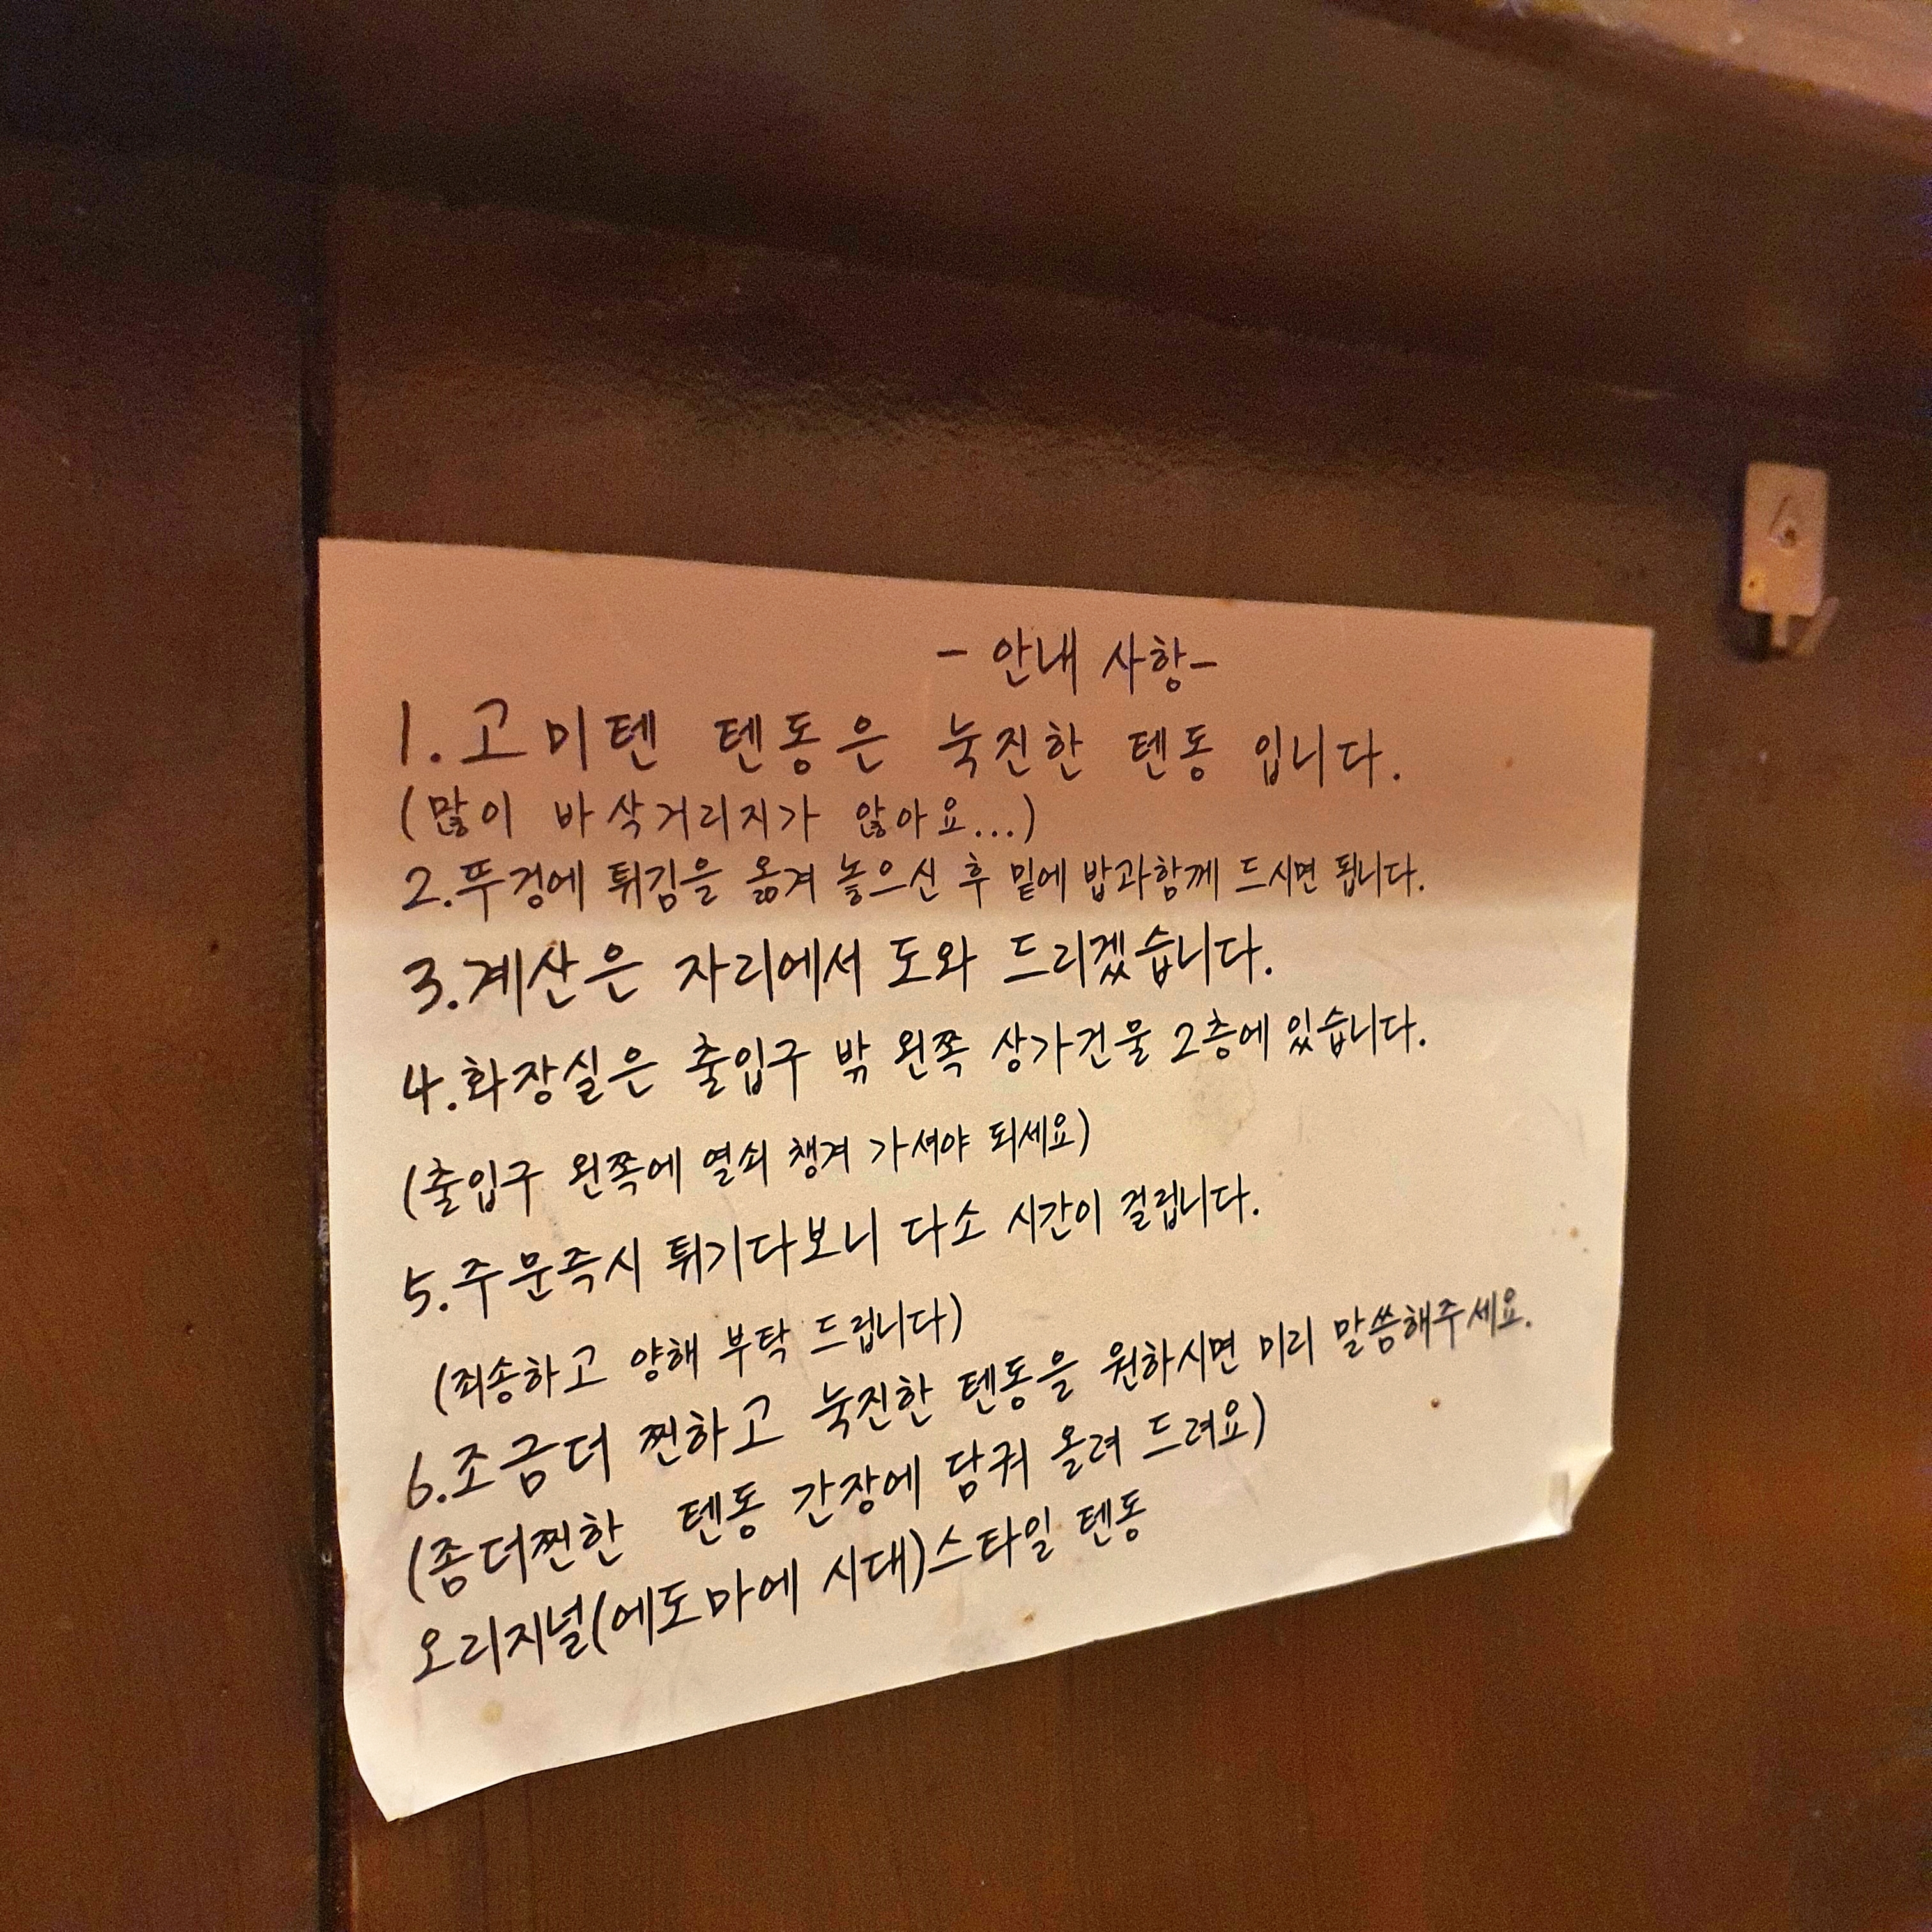 - 안내 사항-
1. 고미텐 텐동은 눅진한 텐동 입니다.
(많이 바삭거리지가 않아요...)
2.뚜겅에 튀김을 옮겨 놓으신 후 밑에 밥과함께 드시면 됩니다.
3.계산은 자리에서 도와 드리겠습니다.
4.화장실은 출입구 밖 왼쪽 상가건물 2층에 있습니다.
(출입구 왼쪽에 열쇠 챙겨 가셔야 되세요)
5.주문즉시 튀기다보니 다소 시간이 걸립니다.
(죄송하고 양해 부탁 드립니다)
6.조금더 찐하고 눅진한 텐동을 원하시면 미리 말씀해주세요.
(좀더찐한 텐동 간장에 담궈 올려 드려요)
오리지널(에도마에 시대)스타일 텐동